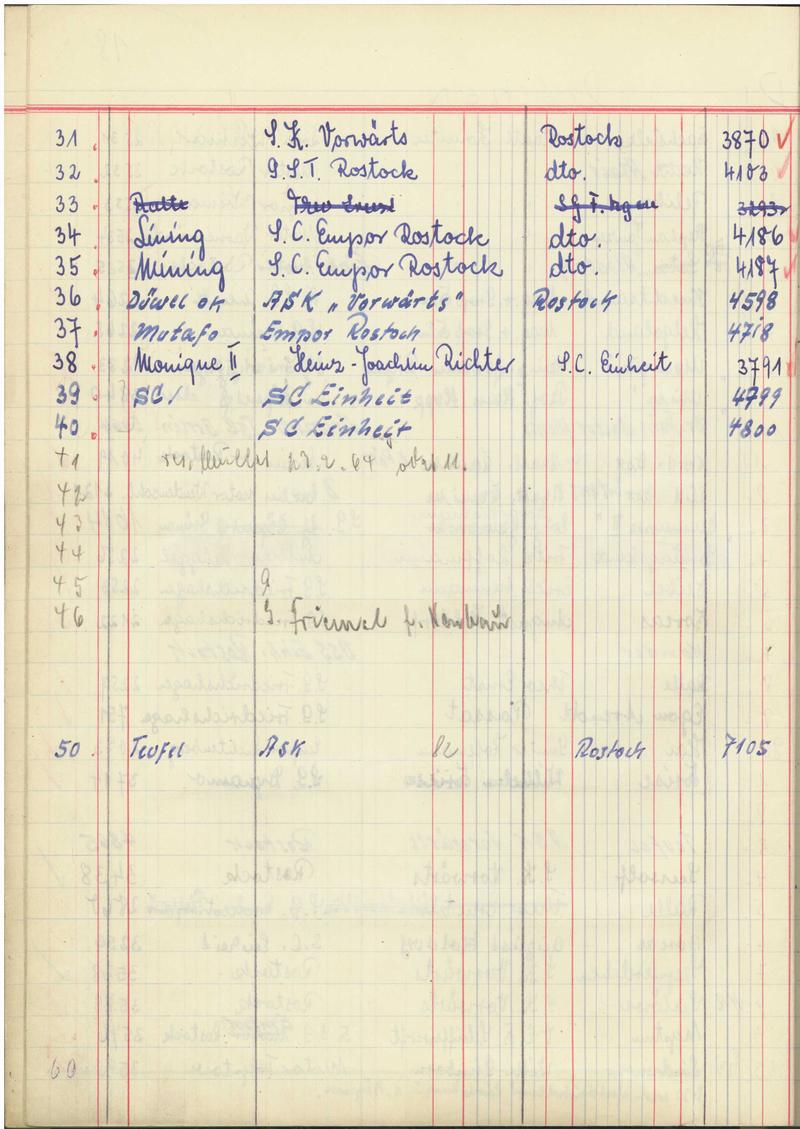 31 S.K. Vorwärts Rostock 3870
32 G.S.T. Rostock dto. 4103
33
34 Lining S.C. Empor Rostock dto. 4186
35 Mining S.C. Empor Rostock dto. 4187
36 Düwel ok ASK „Vorwärts" Rostock 4598
37 Mutafo Empor Rostock 4718
38 Monique II Heinz-Joachim Richter S.C. Einheit 3791
39 SC! SC Einheit 4799
40 SC Einheit 4800
41 23.2.64
42
43
44
45
46 Friemel f.
50 Teufel ASK Rostock 7105
60